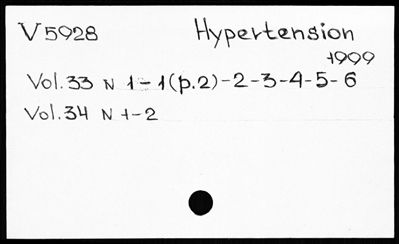 V5928 Hypertension
1999
Vol.33 N 1-1(p.2)-2-3-4-5-6
Vol.34 N 1-2